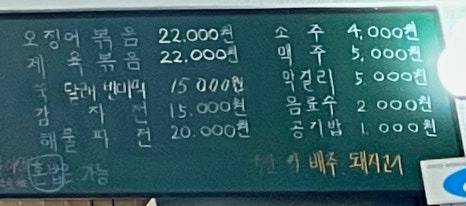 오징어 볶음 22.000원
제 육 볶음 22,000원
달래 빈대떡 15000원
감 자 전 15.000원
해물 파 전 20.000원
소 주 4,000원
맥 주 5,000원
막걸리 5.000원
음료수 2 000원
공기밥 1.000원
가능
배추 돼지고기